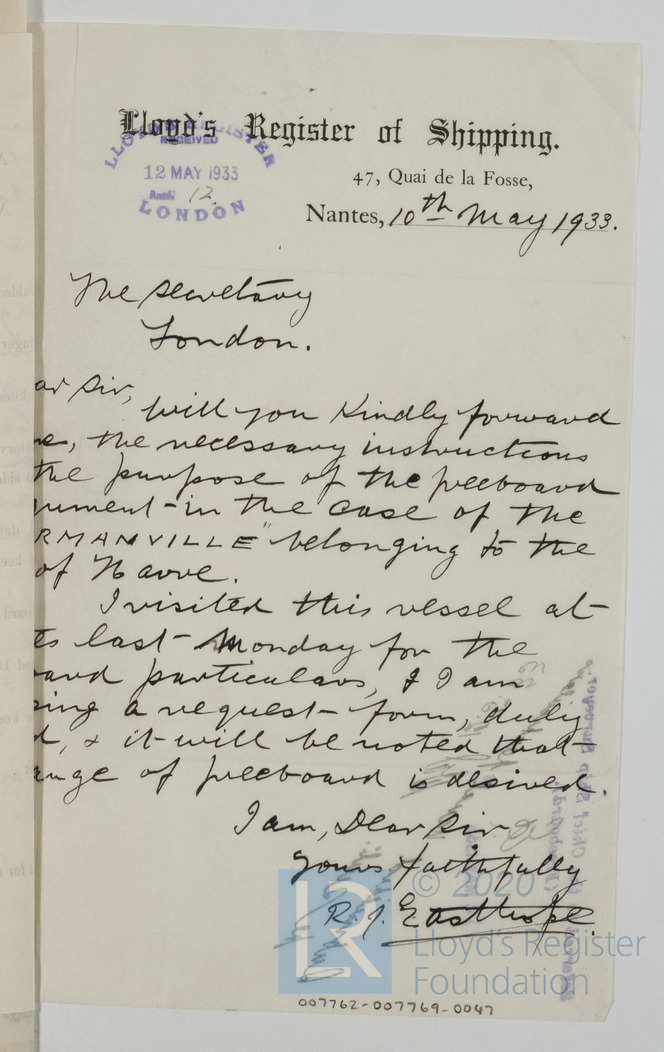 Lloyd's Register of Shipping.
LLOYD'S REGISTER
RECEIVED
12 MAY 1933
12
LONDON
47, Quai de la Fosse,
Nantes, 10th May 1933.
The Secretary
London.
ar Sir,
Will you Kindly forward
me, the necessary instructions
the purpose of the freeboard
gument in the case of the
RMANVILLE" belonging to the
of Havre.
I visited this vessel at
es last Monday for the
oard particulars, & I am
sing a request form, duly
d, & it will be noted that
ange of freeboard is desired.
I am, Dear Sir
Yours faithfully
R. J. Easthope.
© 2020
LR
Lloyd's Register
Foundation
007762-007769-0047